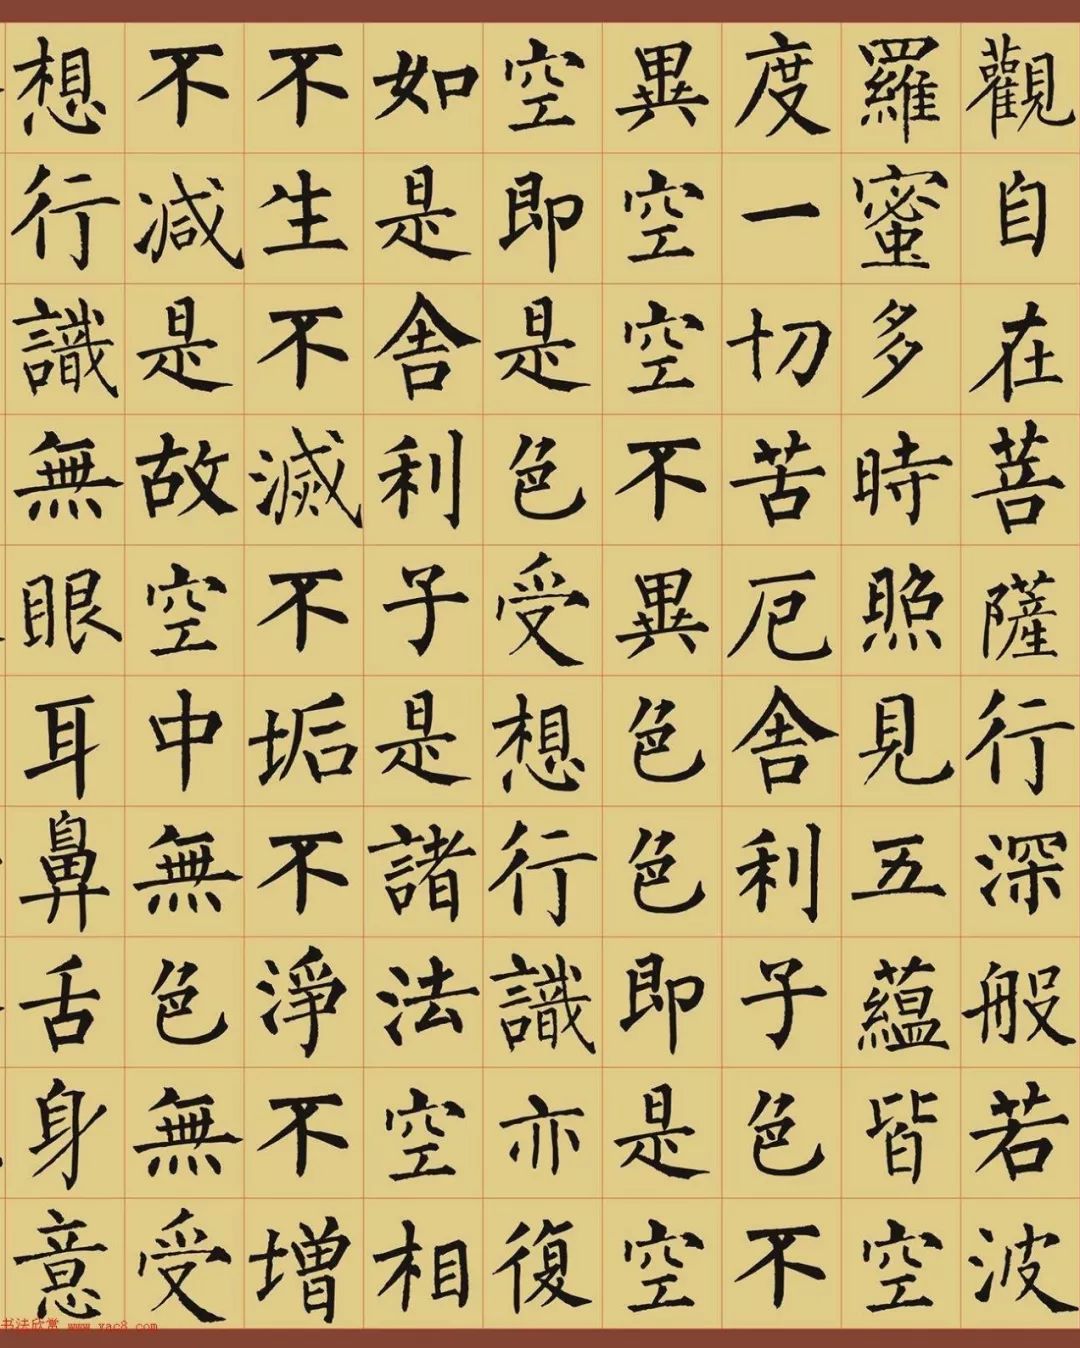 觀自在菩薩行深般若波
羅蜜多時照見五蘊皆空
度一切苦厄舎利子色不
異空空不異色色即是空
空即是色受想行識亦復
如是舎利子是諸法空相
不生不滅不垢不淨不增
不減是故空中無色無受
想行識無眼耳鼻舌身意
书法欣常 www.yac8.com